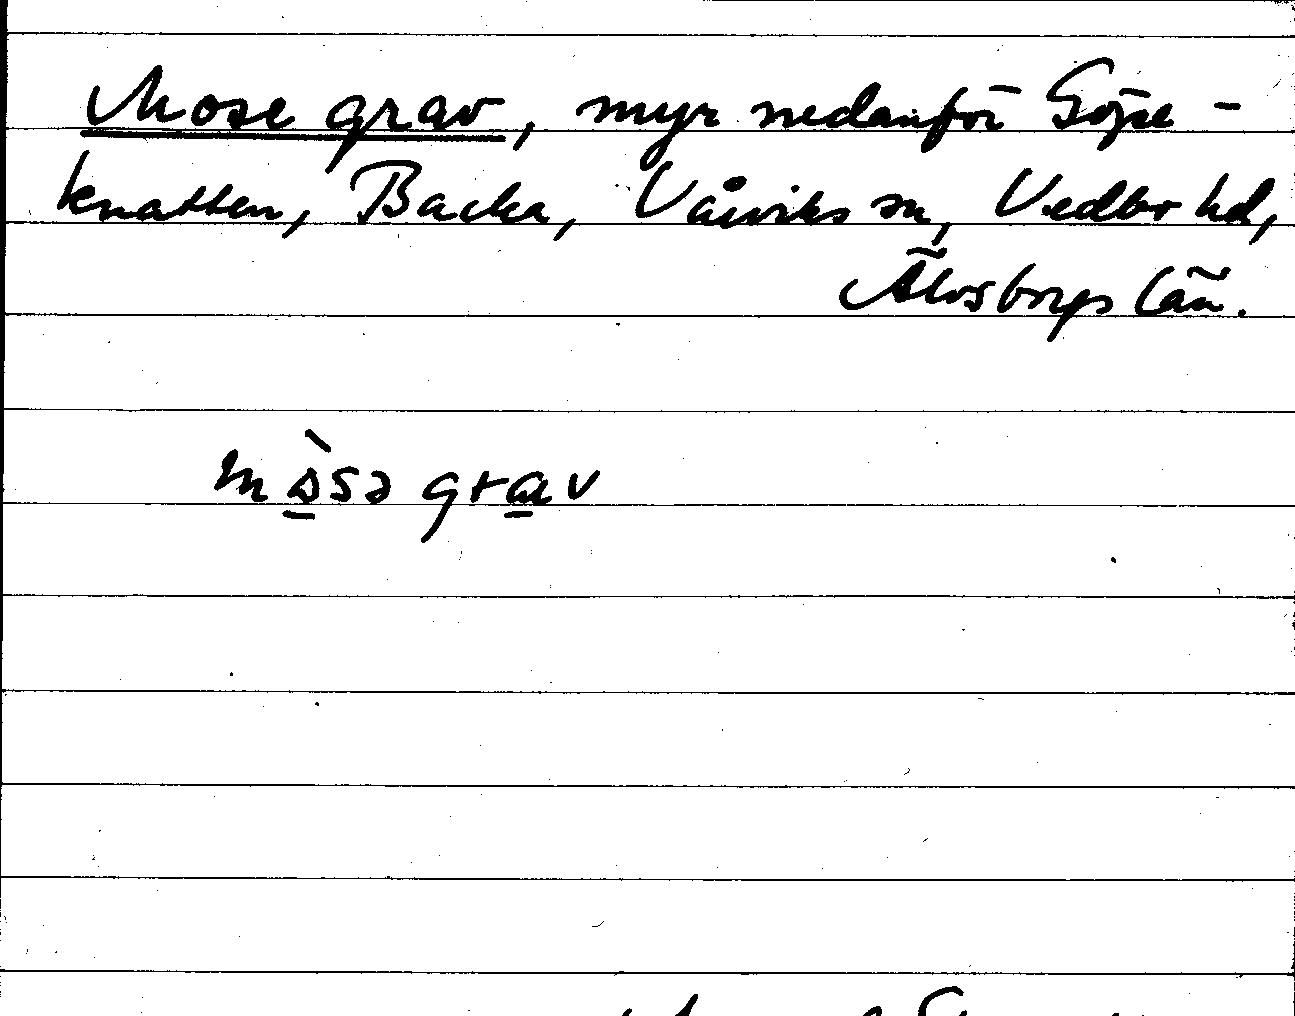 Mose grav, myr nedanför Göpe-
knatten, Backa, Vårviks sn, Vedbo hd,
Älvsborgs län.
m s ə grav